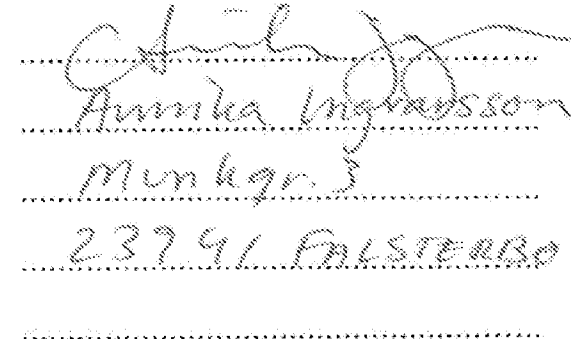 Annika Ingvarsson
Munkgr. 5
23941 FALSTERBO